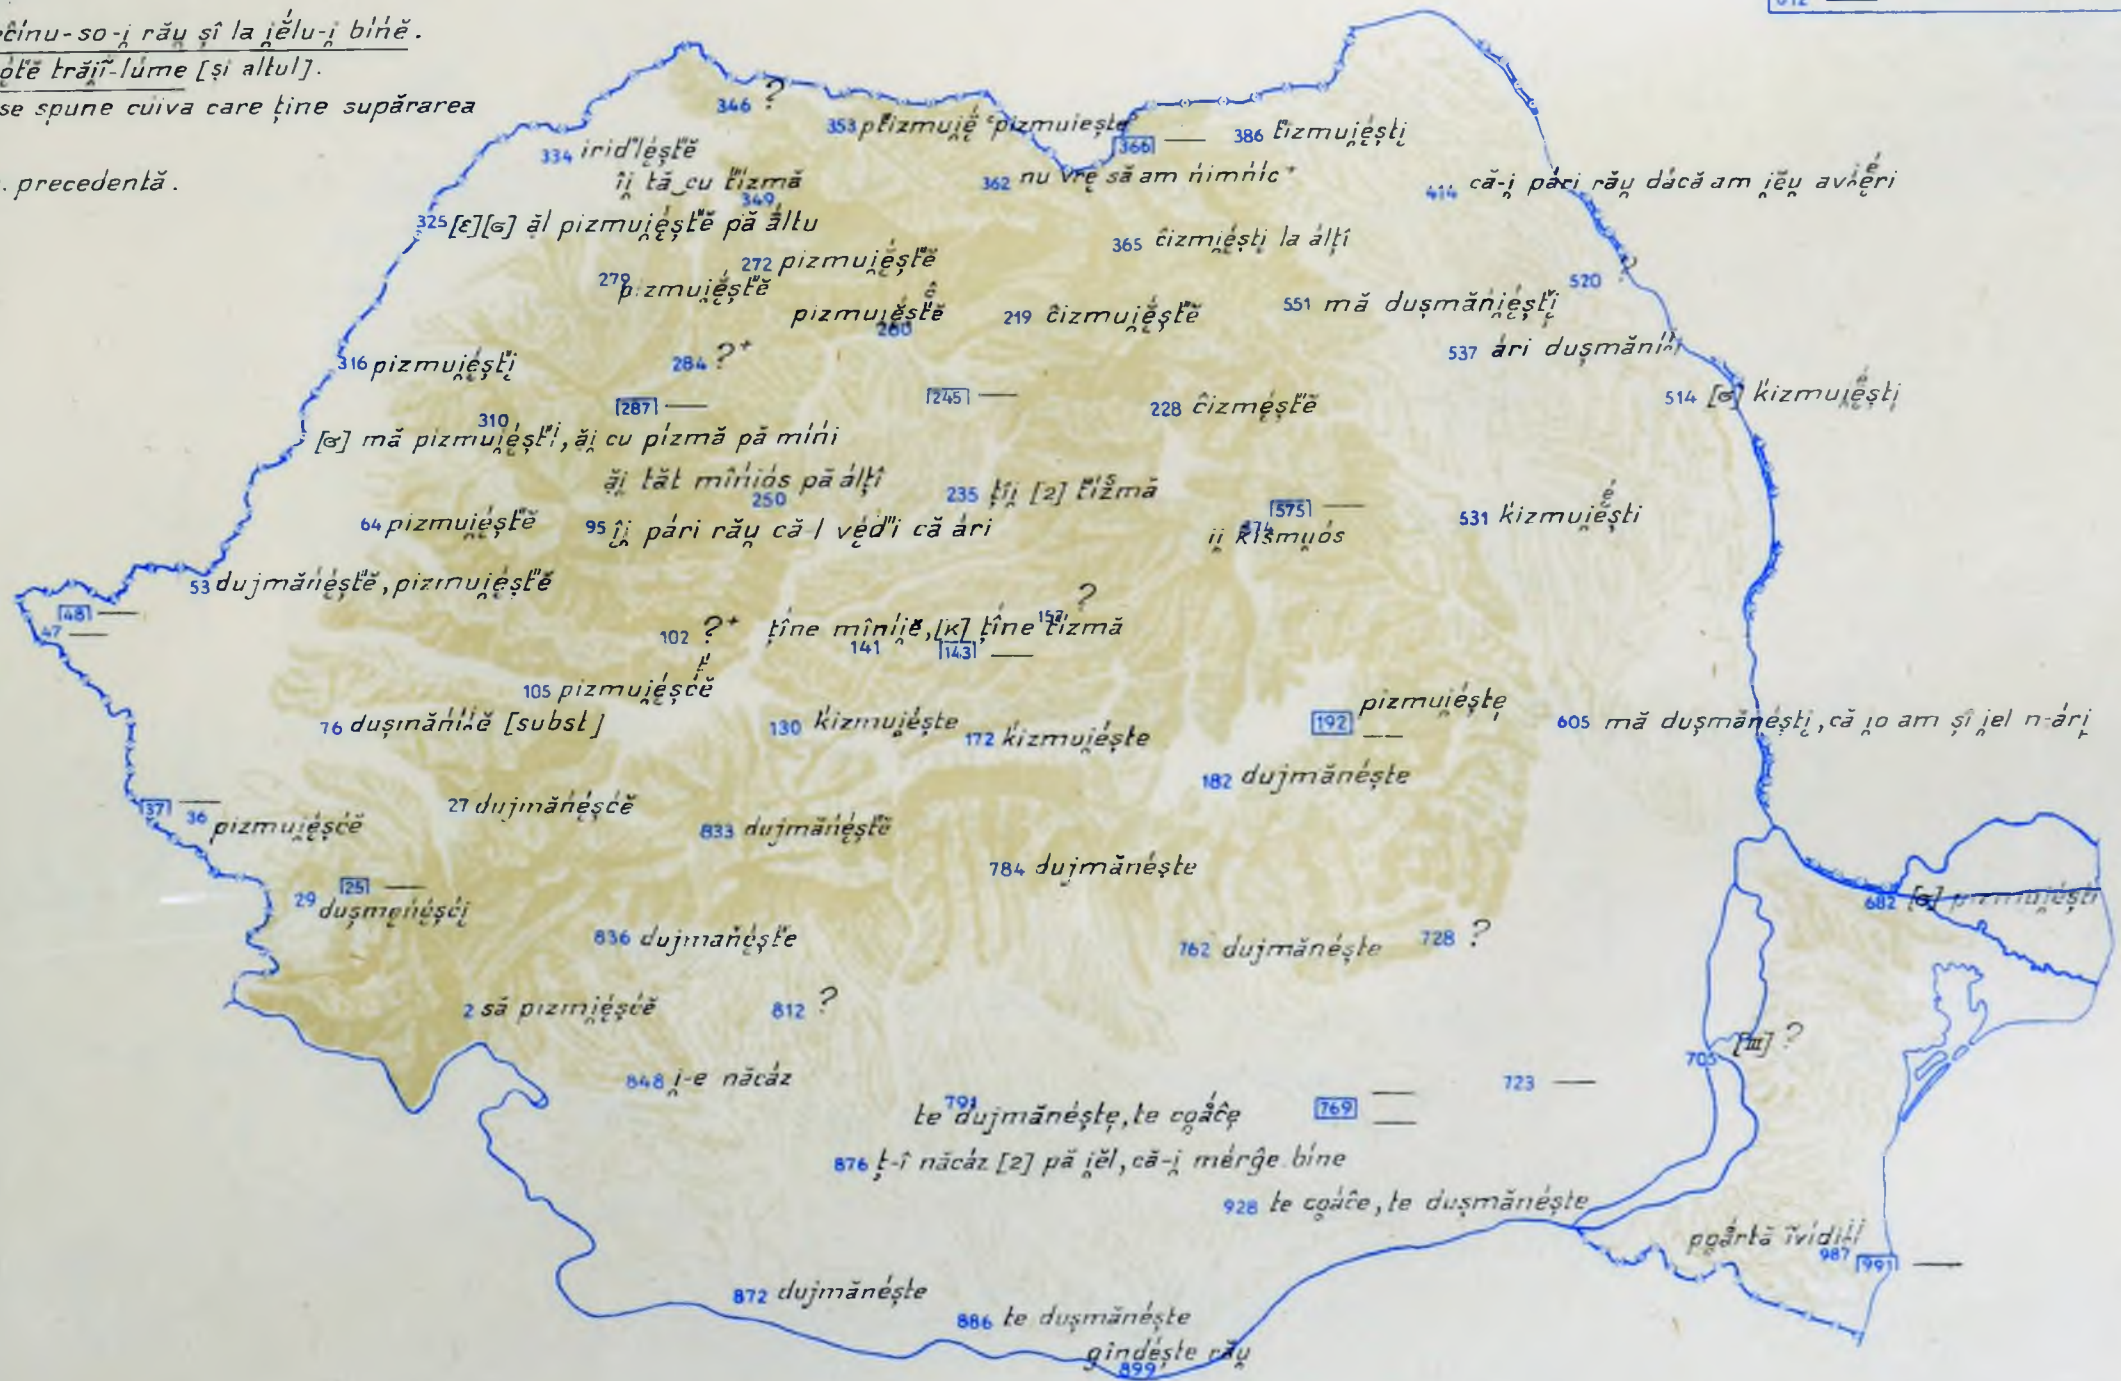 -so-i̯ rău̯ șî la i̯ĕ́lu-i̯ bíńĕ.
trăi̯í̃-lúme [și altul].
se spune cuiva care ține supărarea
precedentă.
346 ?
353 pt́izmui̯ḗ "pizmuiește"
366 —
386 t́izmui̯ẹ́ști̯
334 irid'lẹ́șt'ĕ
îi̯ tă cu t́ízmă
349
362 nu vrẹ să am ńimńíc +
414 că-i̯ pári rău̯ dácă am i̯ĕu̯ avi̯ẹ́ri
325 [ε][ɢ] ăl pizmui̯ẹ́șt'ĕ pă áltu
365 ĉizmi̯ẹ́ști̯ la álțî
272 pizmui̯ẹ́șt'ĕ
279 pizmui̯ẹ́șt'ĕ
520 ?
pizmui̯ẹ́șt'ĕ
280
219 ĉizmui̯ẹ́șt'ĕ
551 mă dușmăńi̯ẹ́șt'i̯
537 ári dușmăníi̯
316 pizmui̯ẹ́șt'i̯
284 ?+
287 —
245 —
228 ĉizmẹ́șt'ĕ
514 [ɢ] ḱizmui̯ẹ́ști̯
310
[ɢ] mă pizmui̯ẹ́șt'i̯, ăi̯ cu pízmă pă míńi
ăi̯ tăt mîńiós pă álțî
250
235 țîi̯ [2] t́ízmă
575 —
531 ḱizmui̯ẹ́ști
64 pizmui̯ẹ́șt'ĕ
95 îi̯ pári rău̯ că-l vẹ́d'i că ári
574
ii̯ ḱismu̯ós
53 dujmăńẹ́șt'ĕ, pizmui̯ẹ́șt'ĕ
48 —
47 —
102 ?+
țîne mîníi̯ĕ, [K] țîne t́ízmă
157 ?
141
143 —
105 pizmui̯ẹ́șćĕ
76 dușmăníi̯ĕ [subst]
130 ḱizmui̯ẹ́ște
172 ḱizmui̯ẹ́ște
192 —
pizmui̯ẹ́ștẹ
605 mă dușmănẹ́ști̯, că i̯o am și i̯el n-ári̯
182 dujmănẹ́ște
37 —
36 pizmui̯ẹ́șćĕ
27 dujmăńẹ́șćĕ
833 dujmăńẹ́șt'ĕ
784 dujmănẹ́ște
25 —
29 dușmẹńẹ́șći̯
682 [ɢ] pizmui̯ẹ́ști
836 dujmăńẹ́șt'e
762 dujmănẹ́ște
728 ?
2 să pizmi̯ẹ́șćĕ
812 ?
705 [III] ?
848 i̯-e năcáz
791
te dujmănẹ́ștẹ, te co̯áĉẹ
769 —
723 —
876 ț-î năcáz [2] pă i̯ĕl, că-i̯ mérĝe bine
928 te co̯áĉe, te dușmănẹ́ște
po̯ártă ĩvidíi̯
987
991 —
872 dujmănẹ́ște
886 te dușmănẹ́ște
gîndẹ́ște rău̯
899